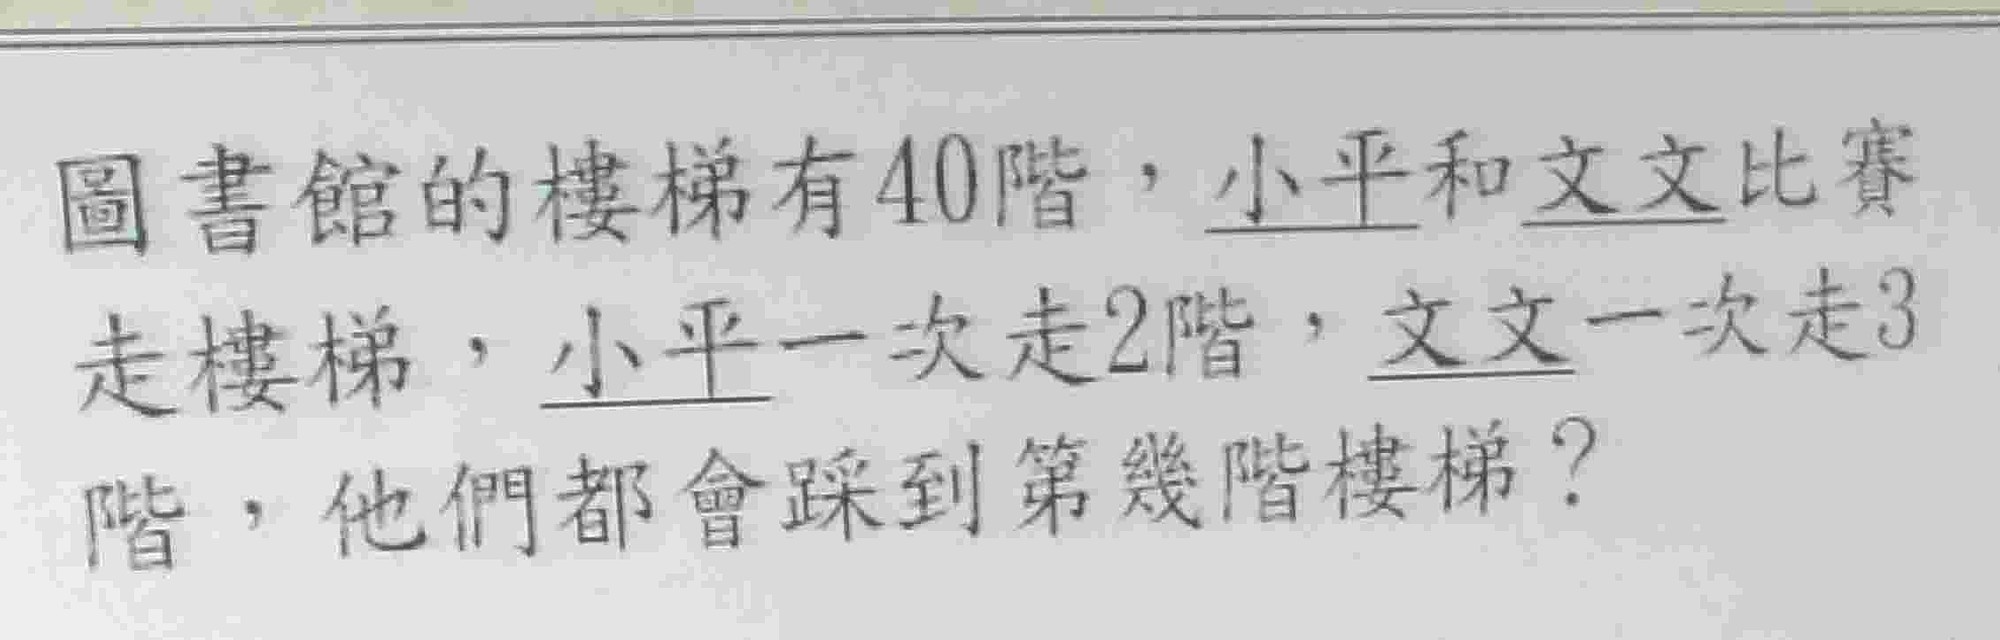 圖書館的樓梯有40階，小平和文文比賽
走樓梯，小平一次走2階，文文一次走3
階，他們都會踩到第幾階樓梯？